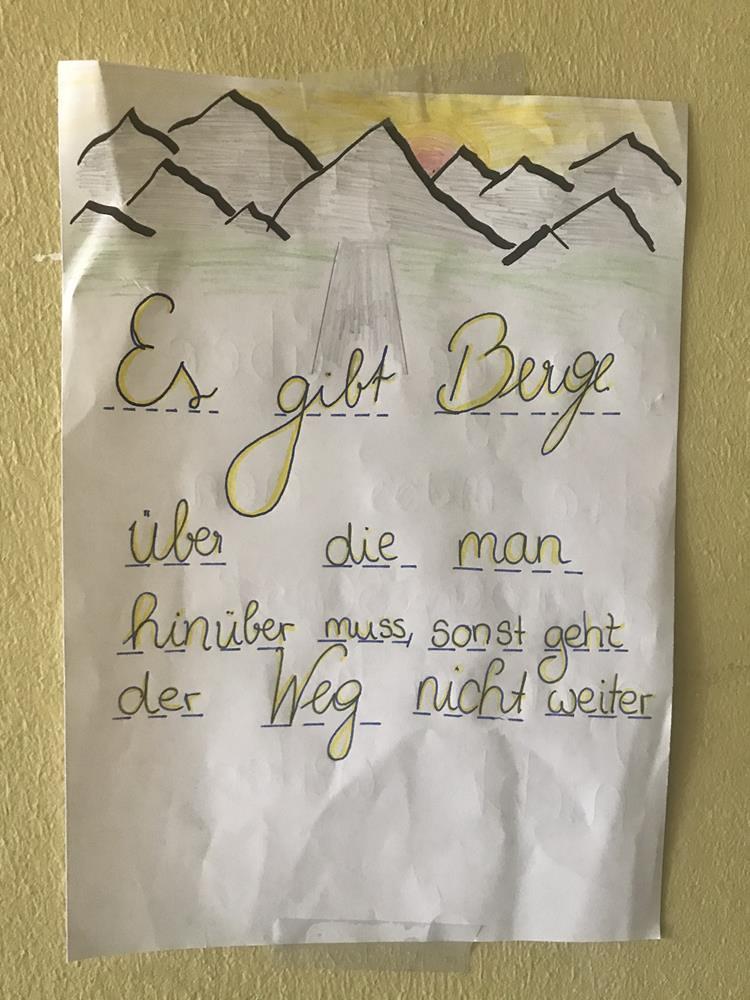 Es gibt Berge
über die man
hinüber muss, sonst geht
der Weg nicht weiter